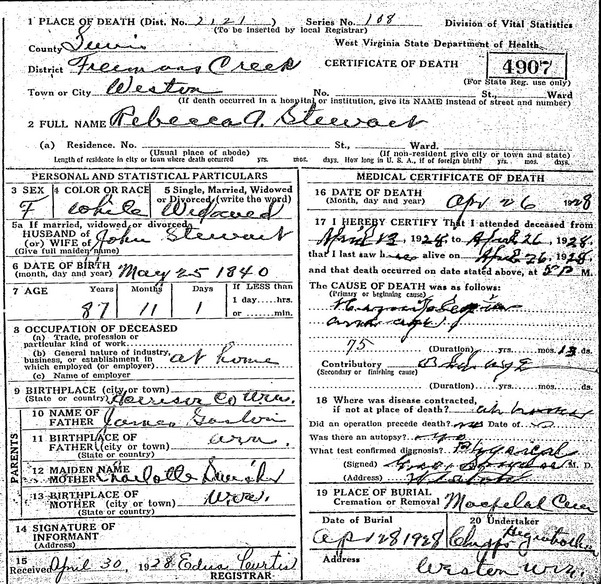 1 PLACE OF DEATH (Dist. No. 2121 ) Series No. 108 Division of Vital Statistics
(To be inserted by local Registrar)
County West Virginia State Department of Health
District Freemans Creek CERTIFICATE OF DEATH 4907
(For State Reg. use only)
Town or City Weston No. St., Ward
(If death occurred in a hospital or institution, give its NAME instead of street and number)
2 FULL NAME Rebecca A. Stewart
(a) Residence. No. St., Ward
(Usual place of abode) (If non-resident give city or town and state)
Length of residence in city or town where death occurred yrs. mos. days. How long in U. S. A., if of foreign birth? yrs. mos. days
PERSONAL AND STATISTICAL PARTICULARS
3 SEX 4 COLOR OR RACE 5 Single, Married, Widowed
or Divorced (write the word)
F White Widowed
5a If married, widowed or divorced
HUSBAND OF John Stewart
(or) WIFE OF
(Give full maiden name)
6 DATE OF BIRTH
(month, day and year) May 25 1840
7 AGE Years Months Days If LESS than
1 day.....hrs.
or ........min.
87 11 1
8 OCCUPATION OF DECEASED
(a) Trade, profession or
particular kind of work
(b) General nature of industry,
business, or establishment in
which employed (or employer) at home
(c) Name of employer
9 BIRTHPLACE (city or town)
(State or country) Harrison Co
PARENTS
10 NAME OF
FATHER James
11 BIRTHPLACE OF
FATHER (city or town)
(State or country)
12 MAIDEN NAME
MOTHER Charlotte
13 BIRTHPLACE OF
MOTHER (city or town)
(State or country)
14 SIGNATURE OF
INFORMANT
(Address)
15
Received April 30, 1928 Edna Curtis
REGISTRAR
MEDICAL CERTIFICATE OF DEATH
16 DATE OF DEATH
(Month, day and year) Apr 26 1928
17 I HEREBY CERTIFY That I attended deceased from
April 13, 1928 to April 26, 1928.
that I last saw her alive on April 26, 1928.
and that death occurred on date stated above, at 5 P M.
The CAUSE OF DEATH was as follows:
(Primary or beginning cause)
75 (Duration) yrs. mos. 13 ds.
Contributory
(Secondary or finishing cause)
(Duration) yrs. mos. ds.
18 Where was disease contracted,
if not at place of death? at home
Did an operation precede death? no Date of
Was there an autopsy? no
What test confirmed diagnosis? Physical
(Signed) M. D.
(Address) Weston
19 PLACE OF BURIAL
Cremation or Removal Macpelah Cem
Date of Burial 20 Undertaker
Apr 28 1928
Address
Weston